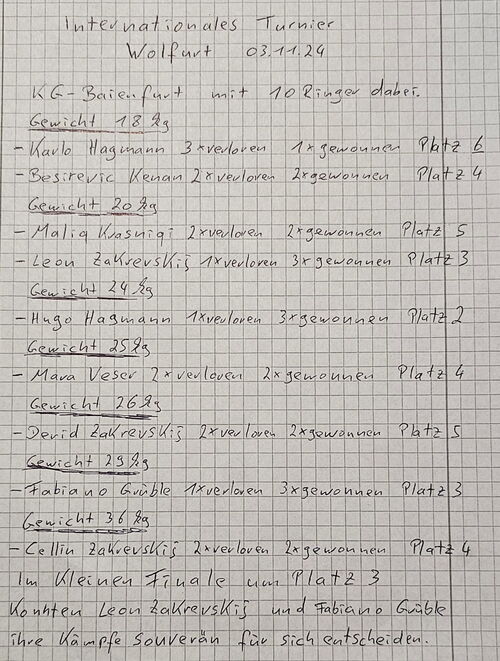 Internationales Turnier
Wolfurt 03.11.24
KG-Baienfurt mit 10 Ringer dabei.
Gewicht 18 kg
- Karlo Hagmann 3xverloren 1xgewonnen Platz 6
- Besirevic Kenan 2xverloren 2xgewonnen Platz 4
Gewicht 20 kg
- Maliq Krasniqi 2xverloren 2xgewonnen Platz 5
- Leon Zakrevskij 1xverloren 3xgewonnen Platz 3
Gewicht 24 kg
- Hugo Hagmann 1xverloren 3xgewonnen Platz 2
Gewicht 25 kg
- Mara Veser 2xverloren 2xgewonnen Platz 4
Gewicht 26 kg
- Devid Zakrevskij 2xverloren 2xgewonnen Platz 5
Gewicht 29 kg
- Fabiano Grüble 1xverloren 3xgewonnen Platz 3
Gewicht 36 kg
- Cellin Zakrevskij 2xverloren 2xgewonnen Platz 4
Im Kleinen Finale um Platz 3
Konnten Leon Zakrevskij und Fabiano Grüble
ihre Kämpfe souverän für sich entscheiden.